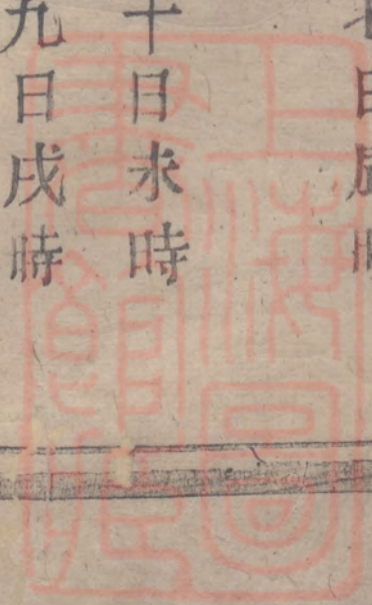 日辰時
十日未時
九日戌時
上海圖
書館藏